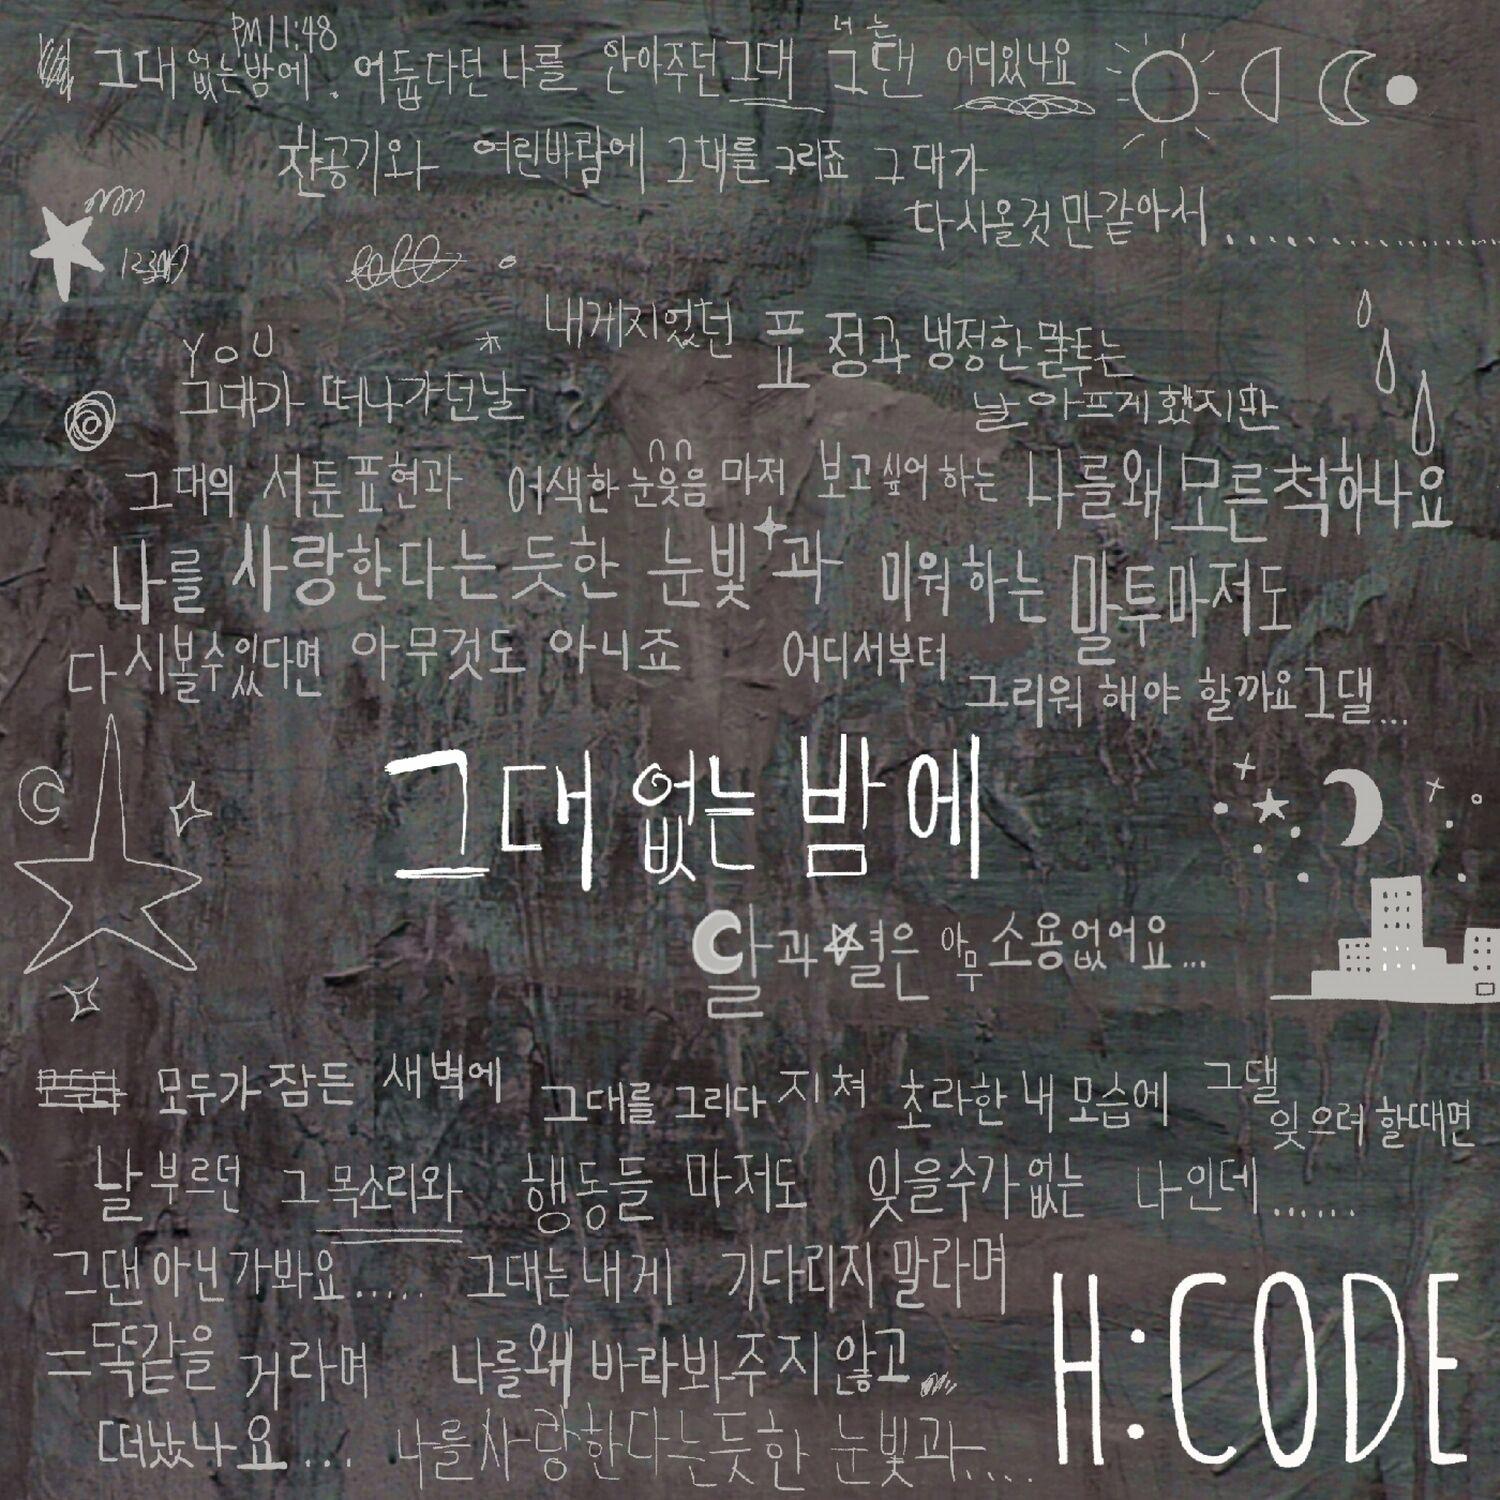 PM 11:48
그대 없는 밤에. 어둡다던 나를 안아주던 그대 그댄 어디있나요
너는
찬공기와 여린바람에 그대를 그리죠 그대가
다시올것만같아서..............................
123
YOU
내게지었던 표정과 냉정한말투는
그대가 떠나가던날
날 아프게했지만
그대의 서툰표현과 어색한 눈웃음 마저 보고싶어 하는 나를왜 모른척하나요
나를 사랑한다는듯한 눈빛과 미워하는 말투마저도
다시볼수있다면 아무것도 아니죠 어디서부터
그리워 해야 할까요 그댈...
그대 없는 밤에
달과 별은 아무 소용없어요...
모두가 잠든 새벽에 그대를 그리다 지쳐 초라한 내 모습에 그댈
잊으려 할때면
날 부르던 그 목소리와 행동들 마저도 잊을수가 없는 나인데......
그댄 아닌가봐요..... 그대는 내게 기다리지 말라며
=똑같을 거라며 나를왜 바라봐주지 않고
떠났나요... 나를사랑한다는듯한 눈빛과.....
H:CODE